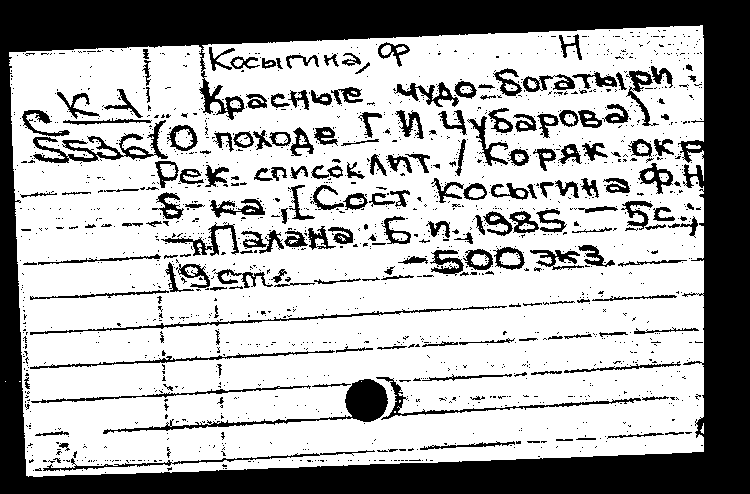 Косыгина, Ф Н
С К-1 Красные чудо-богатыри:
5536 (О походе Г.И.Чубарова):
Рек. список лит. / Коряк. окр
б-ка; [Сост. Косыгина Ф.Н
— Палана: Б.и., 1985. — 5с.;
19 см. — 500 экз.